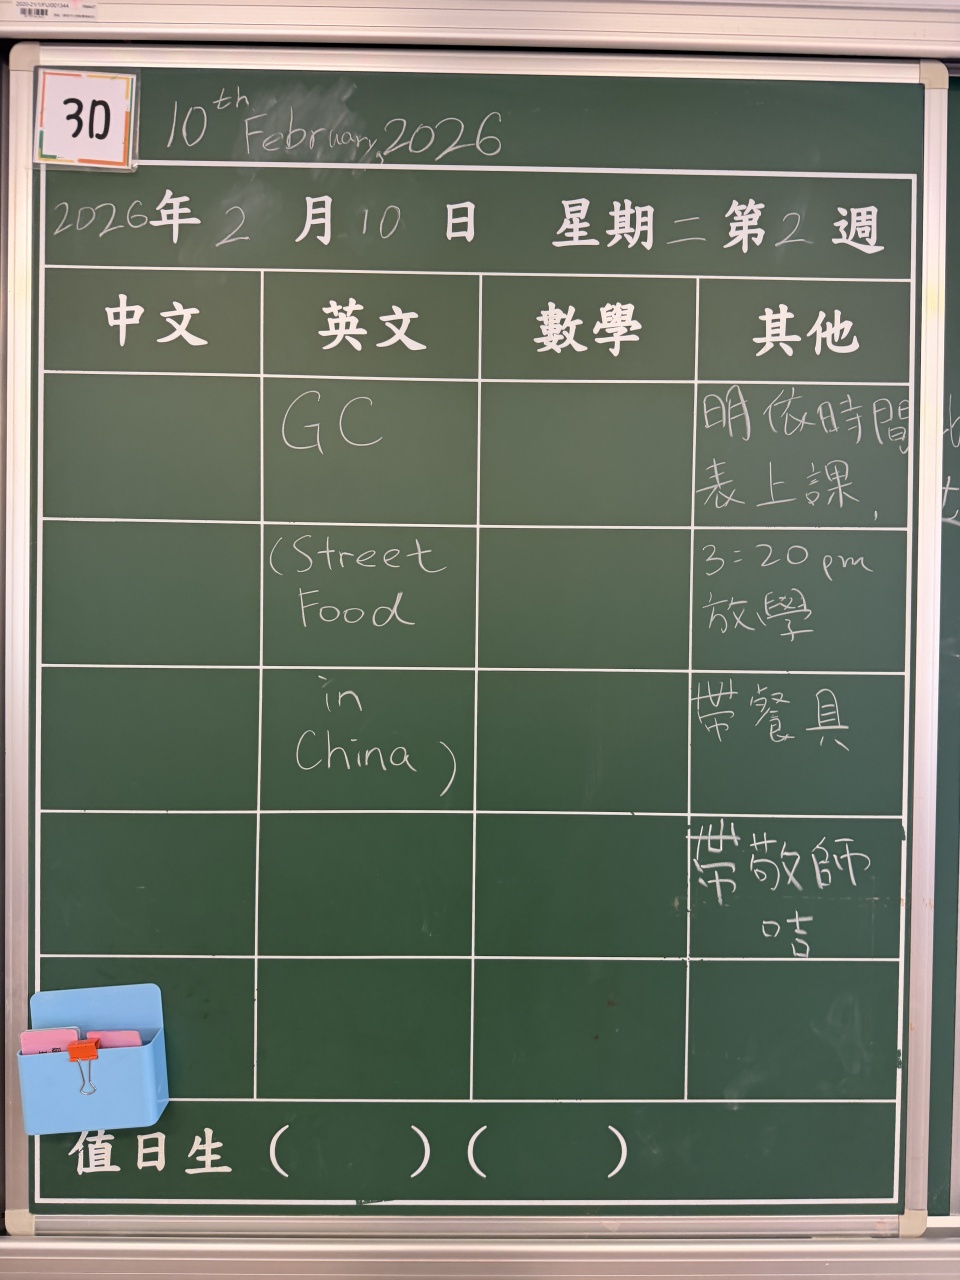 3D
10th February, 2026
2026年2月10日 星期二第2週
中文 英文 數學 其他
GC
明依時間
表上課,
(Street
Food
3:20pm
放學
in
China)
帶餐具
帶敬師
咭
值日生 ( ) ( )